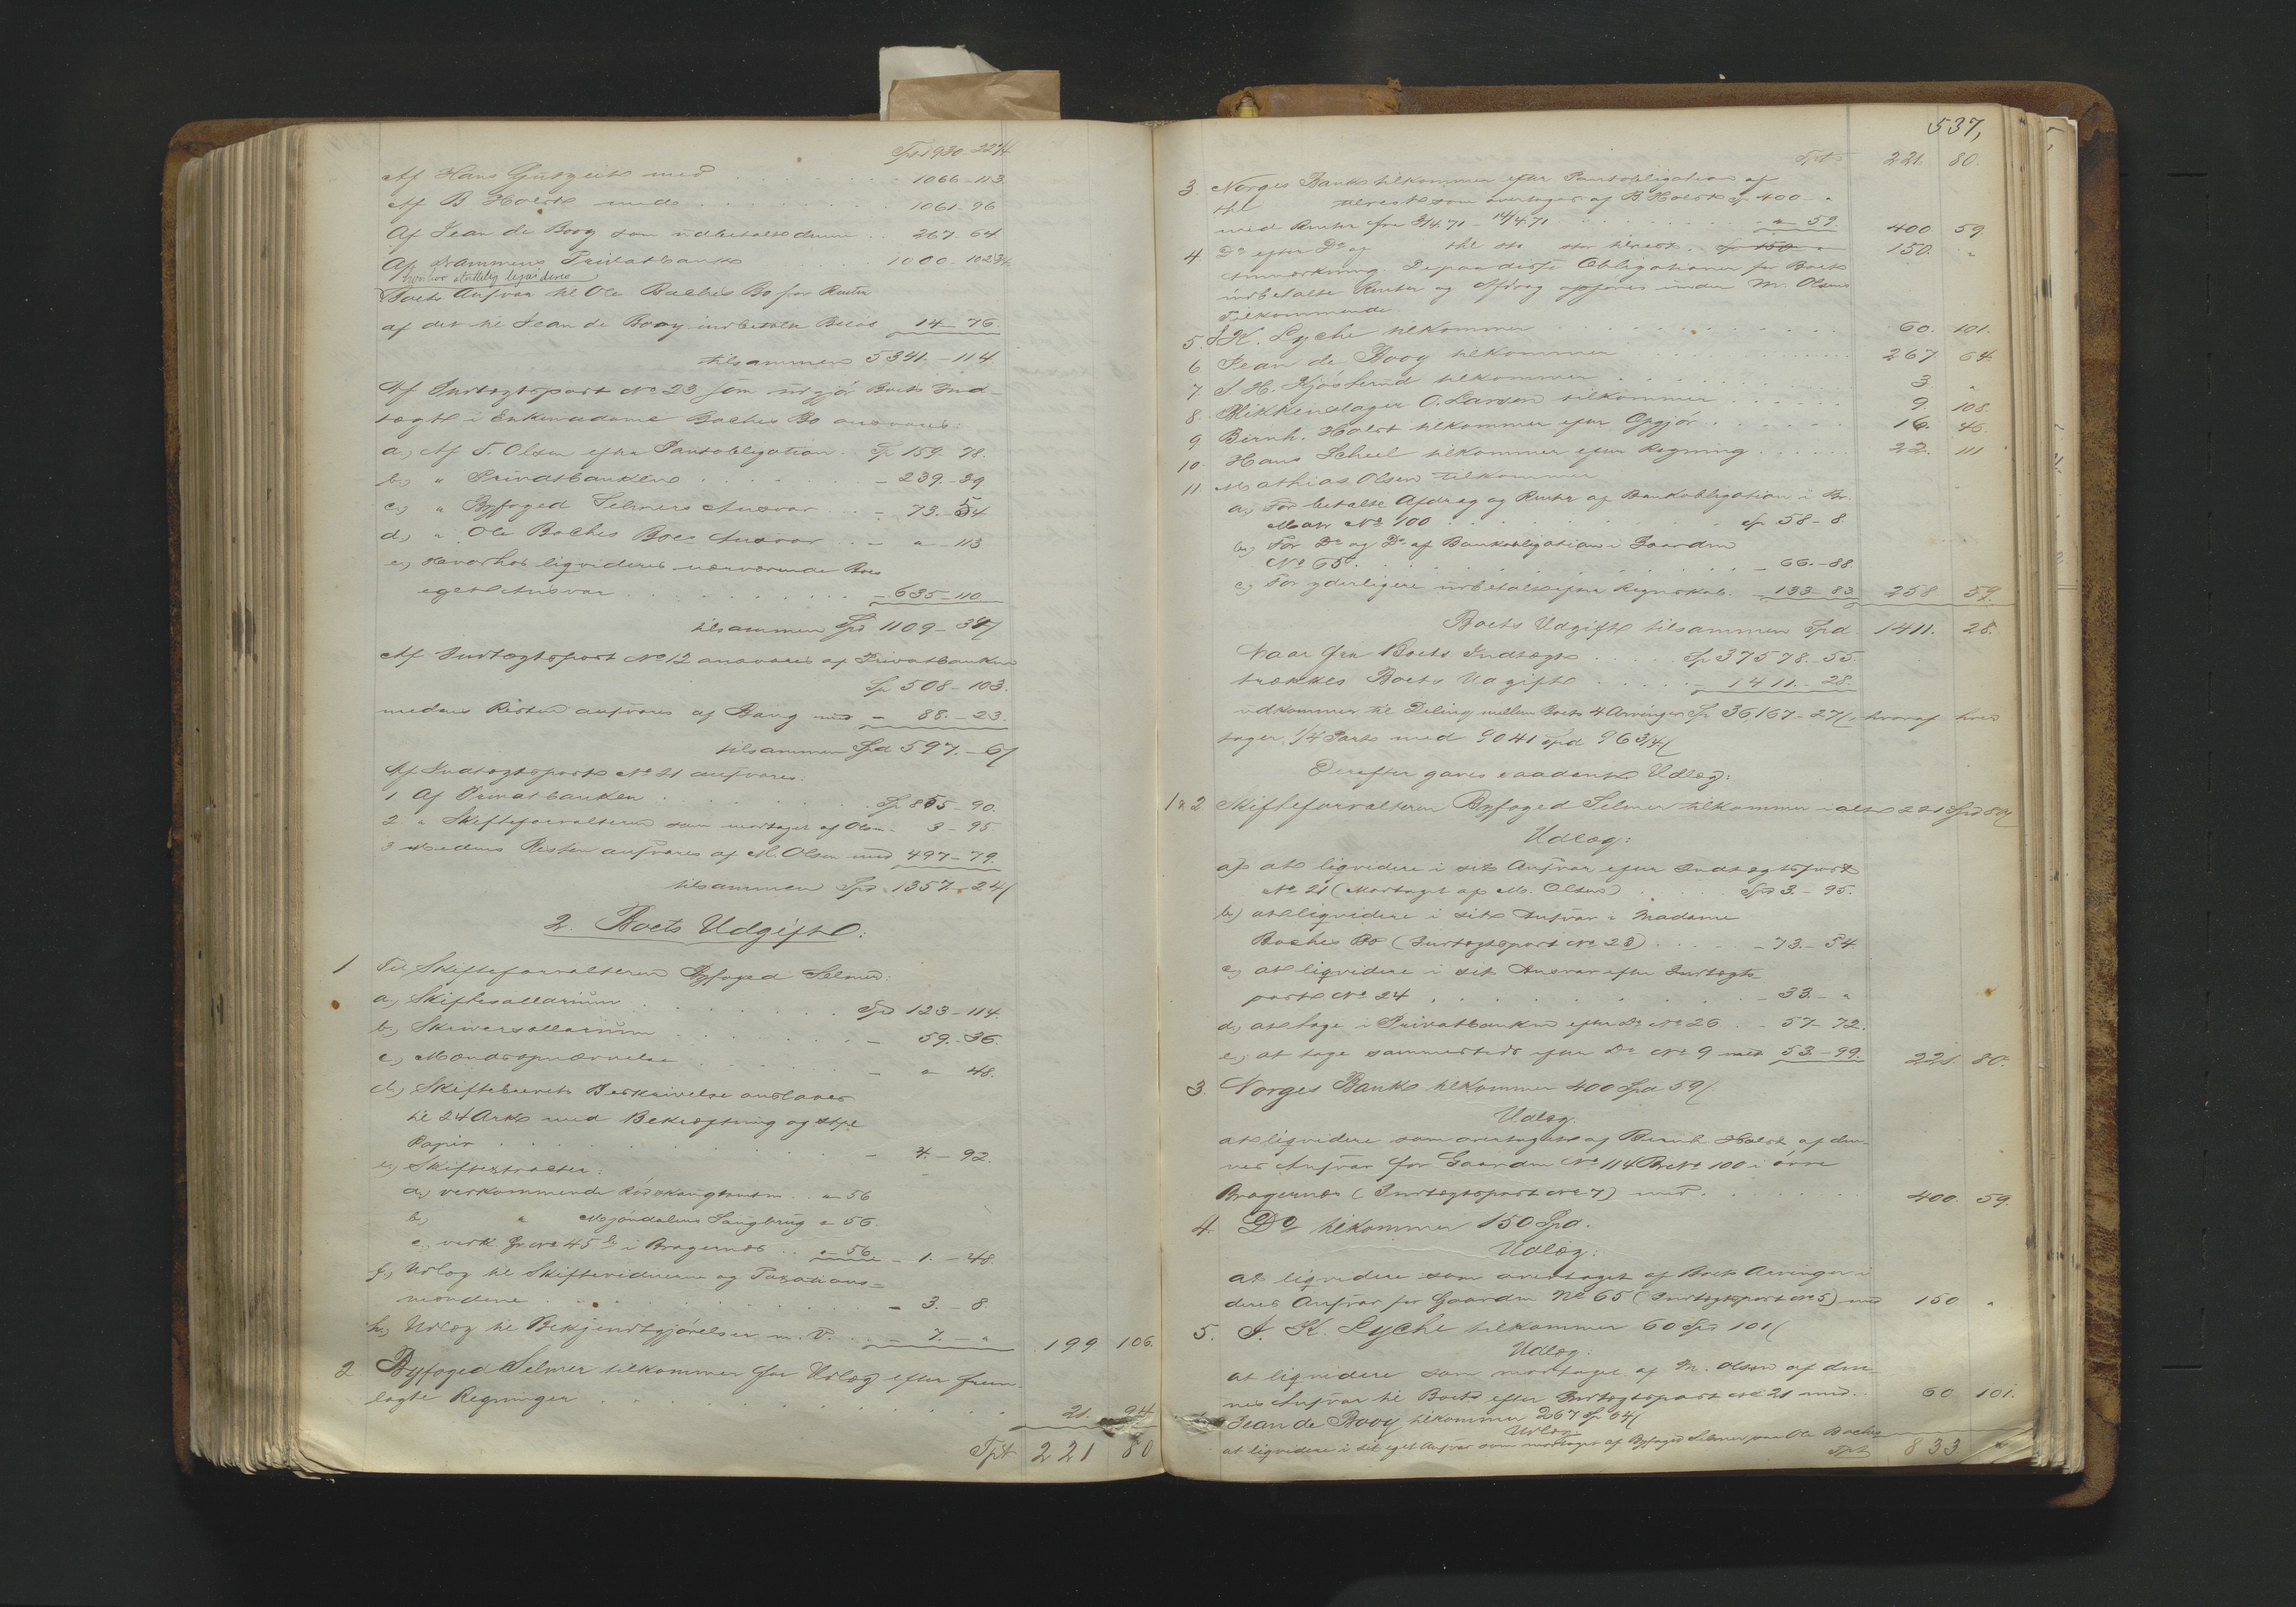 Tp 1930-22¼
Af Hans Gutzeit med . . . 1066-113
af B Holst med . . . 1061-96
Af Jean de Booy som udbetalt denne . . 267-64
Af Drammens Privatbank . . 1000-102¾
hvorhos liqvideres
Boets Ansvar til Ole Baches Bo for Renter
af det til Jean de Booy indbetalte Beløb 14-76
tilsammen 5341.-114
Af Indtægtspost No 23 som udgjør Boets Ind-
tægt i Enkemadame Baches Bo ansvares:
a, Af T. Olsen efter Pantobligation . Sp 159. 78.
b, " Privatbanken . . . - 239.-39.
c, " Byfoged Selmers Ansvar . . - 73.-54
d, " Ole Baches Boes Ansvar . . - " -113
e, Hvorhos liqvideres nærværende Boes
eget Ansvar . . . - 635-110
tilsammen Spd 1109-34/
Af Indtægtspost No 12 ansvares af Privatbanken
Sp 508-103.
medens Resten ansvares af Baug med - 88.-23.
tilsammen Spd 597.-6/
Af Indtægtspost No 21 ansvares:
1 Af Privatbanken . . . Sp 855-90.
2. " Skifteforvalteren som modtaget af Olsen - 3-95.
3 Medens Resten ansvares af M. Olsen med 497-79.
tilsammen Spd 1357.-24/
2. Boets Udgift:
1 Til Skifteforvalteren Byfoged Selmer:
a, Skiftesallarium . . . Spd 123-114.
b, Skriversallarium . . . - 59.-36.
c, Mændsopnævnelse . . . - " 48.
d, Skiftebrevets Beskrivelse anslaaes
til 24 Ark med Bekræftning og stpl
Papir . . . - 4.-92.
e, Skifteextracter:
a, vedkommende . . " 56
b, " Mjøndalens Saugbrug " 56.
c. vedk Gr No 45 b i Bragernæs . . " 56 - 1.-48.
f, Udlæg til Skiftevidnerne og Taxations-
mændene . . . - 3.-8.
h, Udlæg til Bekjendtgjørelser m. V. . . - 7.-" 199 106.
2 Byfoged Selmer tilkommer for Udlæg efter frem-
lagte Regninger . . . 21. 94
Tpt 221 80
537,
Tpt 221. 80.
3. Norges Bank tilkommer efter Pantobligation af
til tilrest som overtages af B. Holst Sp 400-"
med Renter fra . . - 14/4.71 . . . " 59. 400. 59.
4. Do efter Do af til . . tilrest . Sp 150 " 150. "
Anmærkning. De paa disse Obligationer for Boet
indbetalte Renter og Afdrag opføres under M. Olsens
Tilkommende.
5. J. K. Lyche tilkommer . . . 60. 101.
6. Jean de Booy tilkommer . . . 267. 64.
7. J H. Kjøsterud tilkommer . . . 3. "
8. Blikkenslager O. Larsen tilkommer . . . 9. 108.
9. Bernh. Holst tilkommer efter Opgjør . . . 16. 46.
10. Hans Scheel tilkommer efter Regning . . . 22. 111
11. Mathias Olsen tilkommer
a, For betalte Afdrag og Renter af Bankobligation i Br.
Matr No 100 . . . Sp 58-8.
b, For Do og Do af Bankobligation i Gaarden
No 65 . . . - 66.-88.
c, For yderligere udbetalt efter Regnskab. - 133-83 258 59.
Boets Udgift tilsammen Spd 1411. 28.
Naar fra Boets Indtægt . . . Sp 37578.-55.
trækkes Boets Udgift . . . - 1411.-28.
udkommer til Deling mellem Boets 4 Arvinger Sp 36,167-27/, hvoraf hver
tager 1/4 Part med 9041 Spd 96 3/4/
Derefter gives saadant Udlæg:
1 & 2 Skifteforvalteren Byfoged Selmer tilkommer i alt 221 Spd 80/
Udlæg:
a, at liqvidere i sit Ansvar efter Indtægtspost
No 21 (Modtaget af M. Olsen) . Spd 3.-95.
b, at liqvidere i sit Ansvar i Madame
Baches Bo (Indtægtspost No 23) . . . - 73.-54.
c, at liqvidere i sit Ansvar efter Indtægts-
post No 24 . . . - 33.-"
d, at tage i Privatbanken efter Do No 26 . - 57-72.
e, at tage sammesteds efter Do No 9 med 53.-99. 221. 80.
3. Norges Bank tilkommer 400 Spd 59/.
Udlæg.
at liqvidere som overtaget af Bernh Holst af den-
nes Ansvar for Gaarden No 114 B No 100 i øvre
Bragernæs (Indtægtspost No 7) med . . . 400. 59.
4. Do tilkommer 150 Spd.
Udlæg:
at liqvidere som overtaget af Boets Arvinger i
deres Ansvar for Gaarden No 65 (Indtægtspost No 5) med 150 "
5. J. K. Lyche tilkommer 60 Spd 101/
Udlæg:
at liqvidere som modtaget af M. Olsen af den-
nes Ansvar til Boet efter Indtægtspost No 21 med . 60 101.
Jean de Booy tilkommer 267 Sp 64/
Udlæg.
at liqvidere i sit eget Ansvar som modtaget af Byfoged Selmer paa Ole Baches
Tpt 833 "